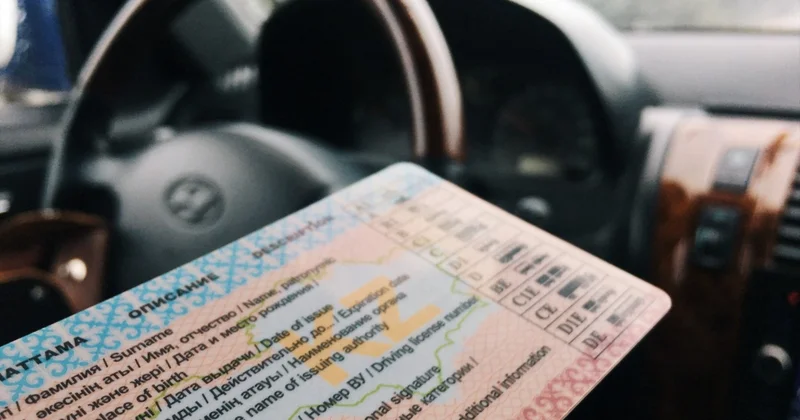 ПАТТАМА ОПИСАНИЕ DESCRIPTION
/ Фамилия / Surname
әкесінің аты / Имя, отчество / Name, patronymic
және жері / Дата и место рождения /
place of birth
/ Дата выдачи / Date of issue
/ Действительно до... / Expiration date
атауы / Наименование органа
name of issuing authority
/ Номер ВУ / Driving license number
signature
категории /
additional information
KZ
BE
C1E
CE
D1E
DE